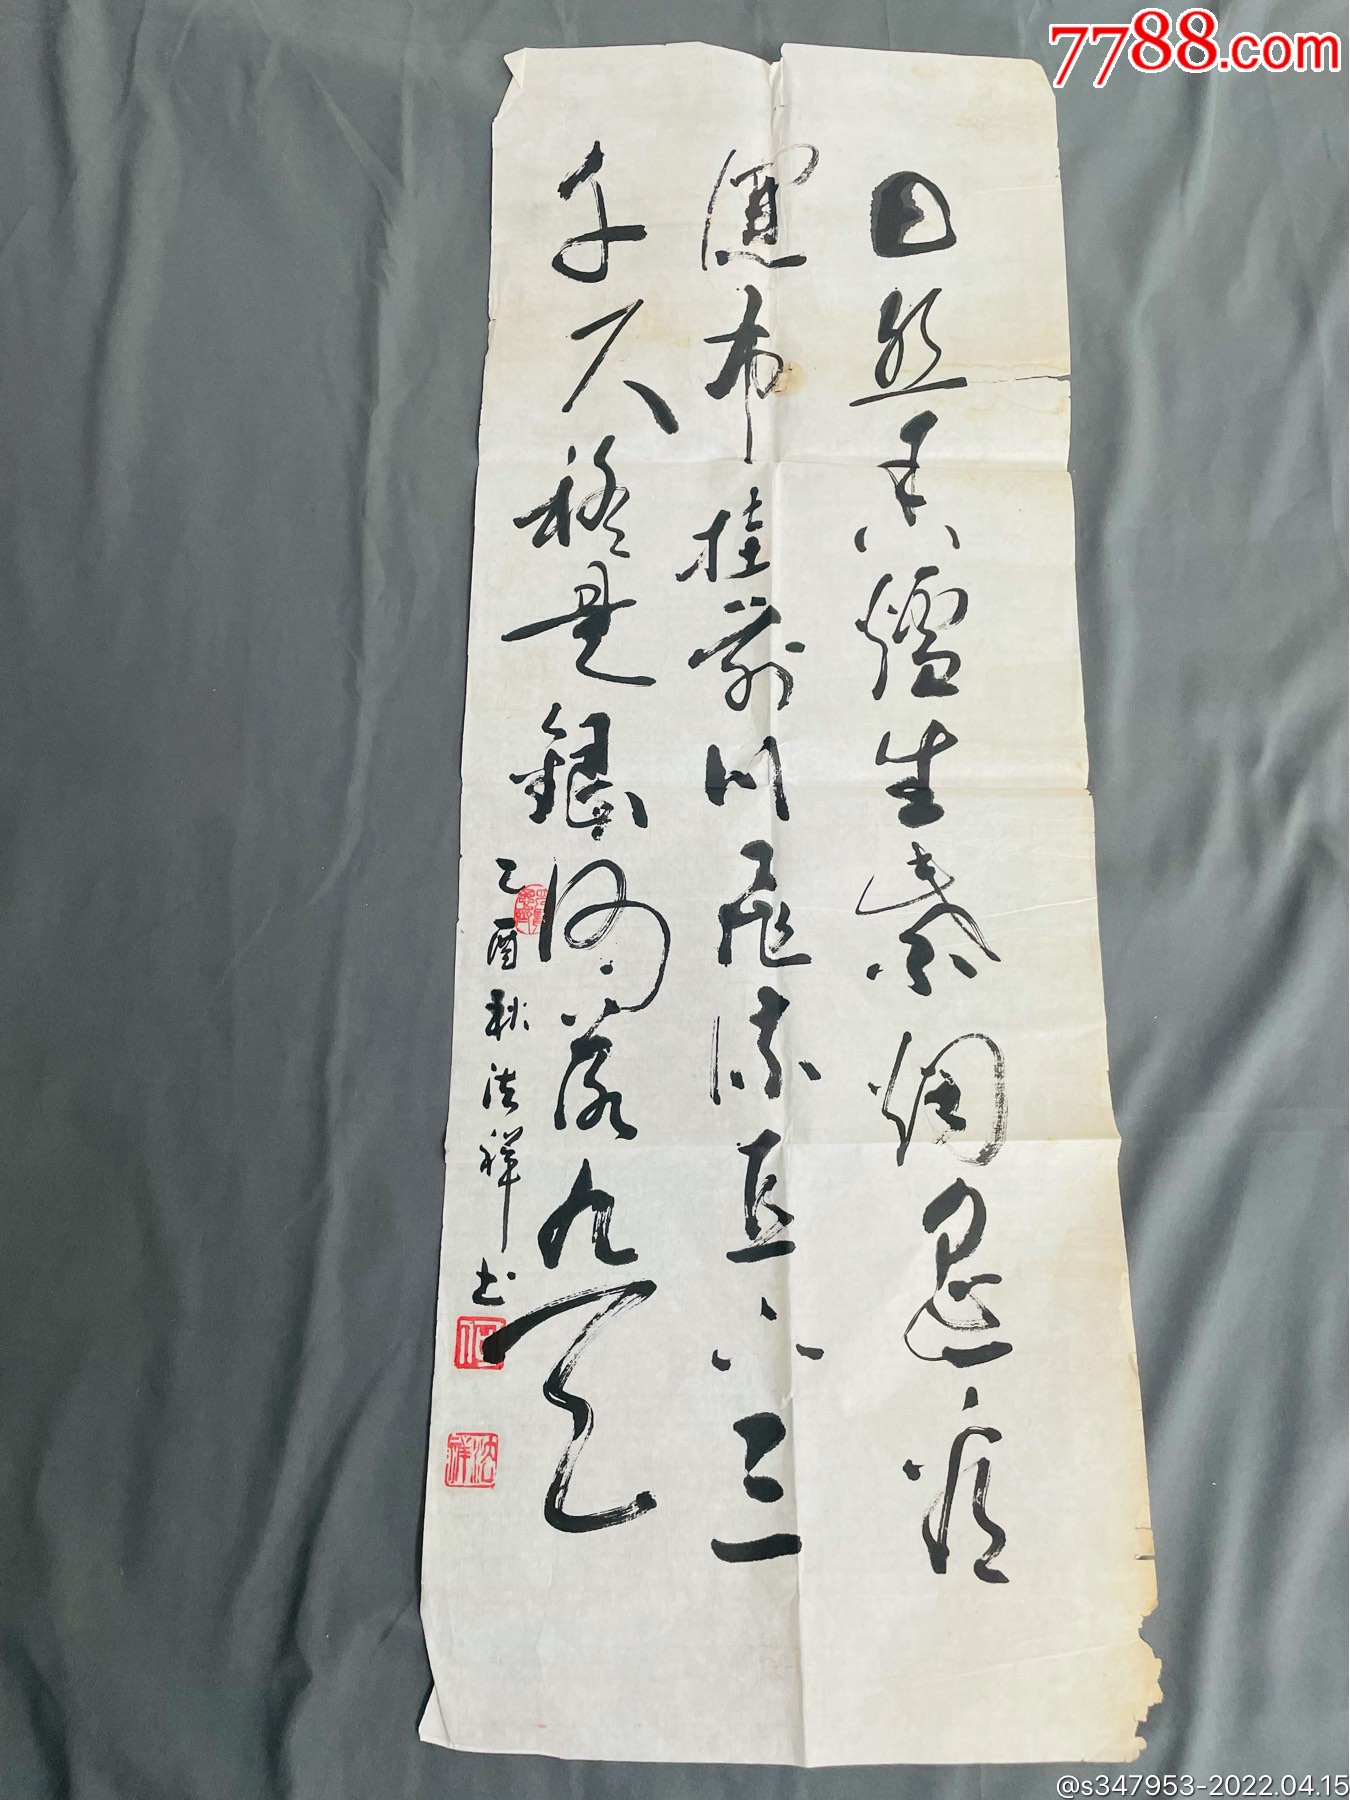 7788.com
日照香爐生紫烟遥看
瀑布挂前川飛流直下三
千尺疑是銀河落九天
乙酉秋法祥书
何
法祥
@s347953-2022.04.15